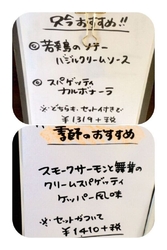 おすすめ!!
若鶏のソテー
バジルクリームソース
スパゲッティ
カルボナーラ
※どちらも、セット付きで
¥1319+税
のおすすめ
スモークサーモンと舞茸の
クリームスパゲッティ
ケッパー風味
※セットがついて
¥1410+税